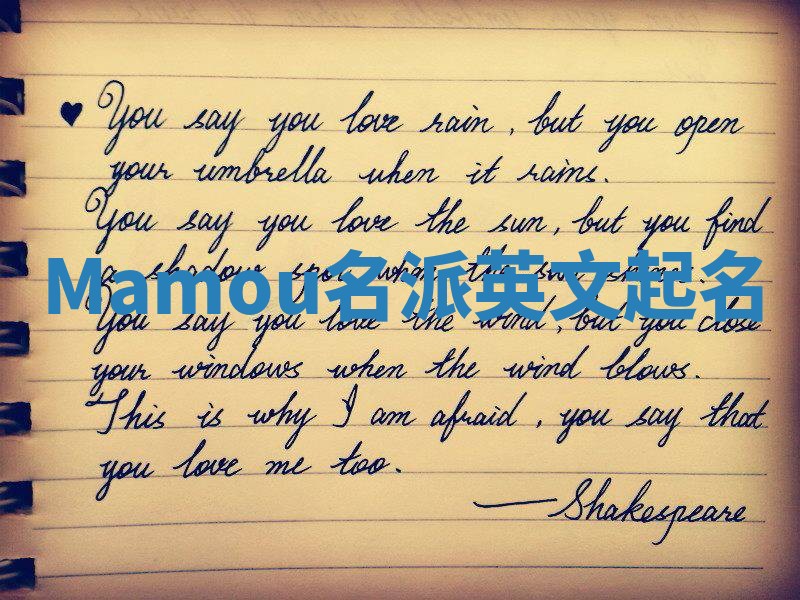 ♥ You say you love rain, but you open
your umbrella when it rains.
You say you love the sun, but you find
a shadow spot when the sun shines.
Mamou名派英文起名
You say you love the wind, but you close
your windows when the wind blows.
This is why I am afraid, you say that
you love me too.
— Shakespeare